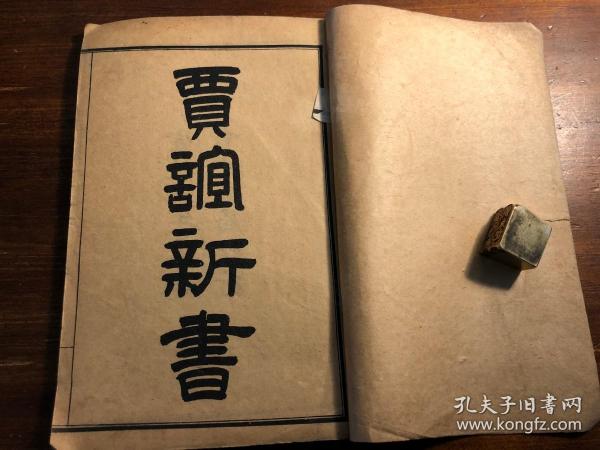 賈誼新書
孔夫子旧書网
www.kongfz.com